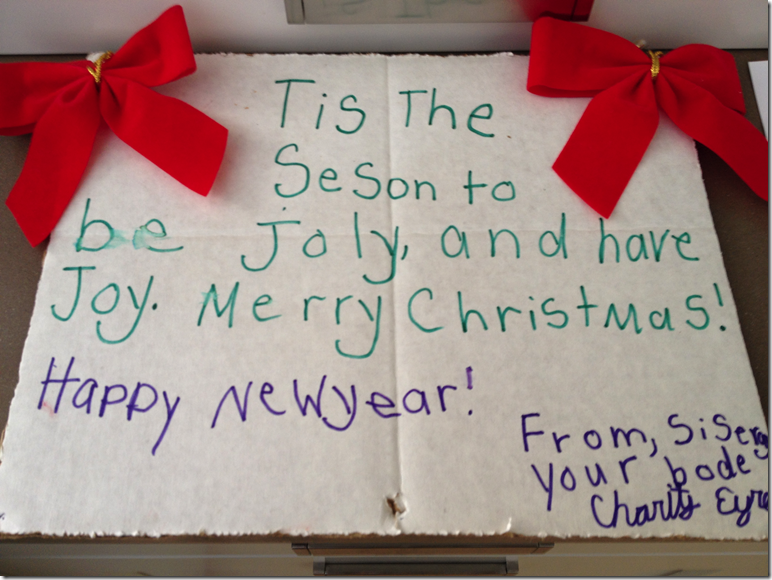 Tis The
Seson to
be Joly, and have
Joy. Merry Christmas!
Happy Newyear!
From,
your bode
Charity